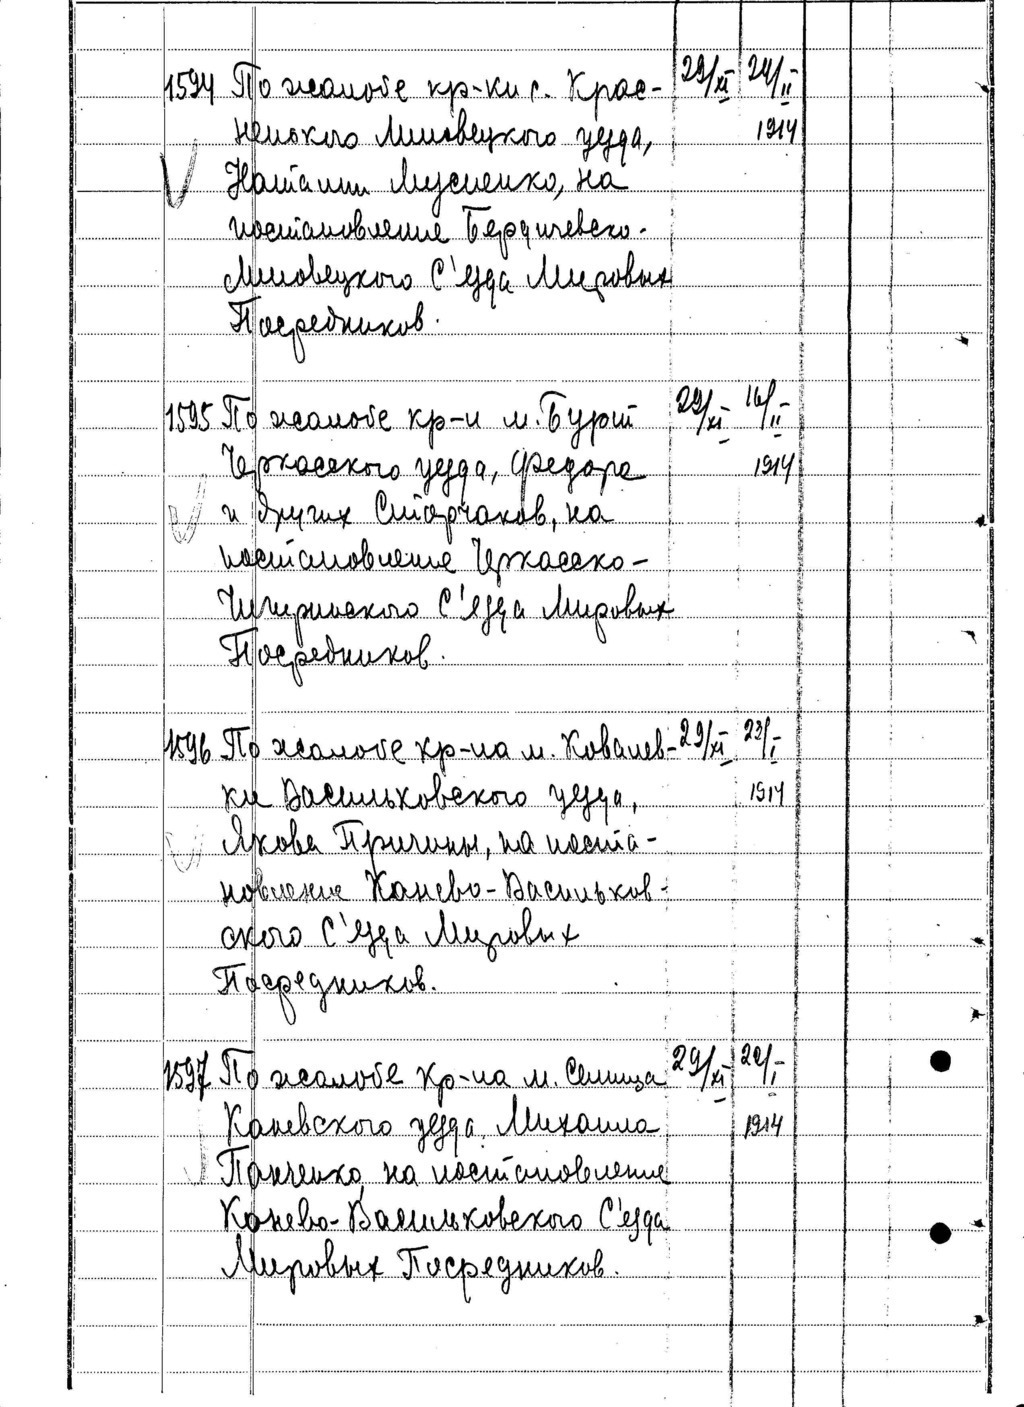 1594 По жалобе кр-ки с. Крас- 29/XI 24/II
ненского Липовецкого уезда, 1914
Наталии Мусиенко, на
постановление Бердичевско-
Липовецкого С'езда Мировых
Посредников.
1595 По жалобе кр-н м. Бурт 29/XI 16/II
Черкасского уезда, Федора 1914
и других Старчаков, на
постановление Черкасско-
Чигиринского С'езда Мировых
Посредников.
1596 По жалобе кр-на м. Ковалев- 29/XI 23/I
ки Васильковского уезда, 1914
Якова Причины, на поста-
новление Канево-Васильков-
ского С'езда Мировых
Посредников.
1597 По жалобе кр-на м. 29/XI /I
Каневского уезда Михаила 1914
Панченко на постановление
Канево-Васильковского С'езда
Мировых Посредников.